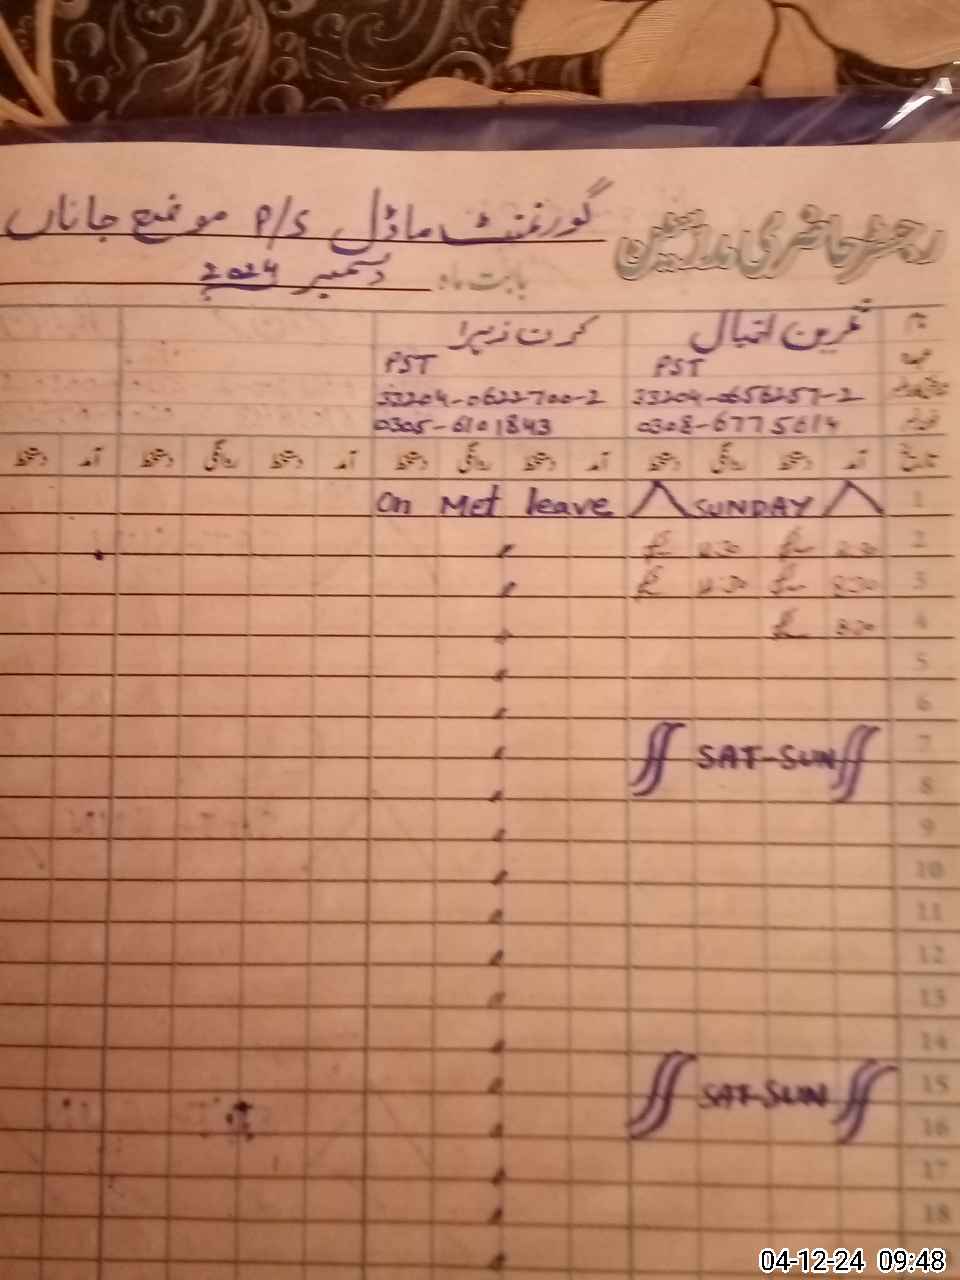 رجسٹر حاضری مدرسین گورنمنٹ ماڈل P/S موضع جاناں
بابت ماہ دسمبر 2024
نام ثمرین اقبال کرن زہرا
عہدہ PST PST
33204-0656257-2 33204-0622700-2
0308-6775614 0305-6101843
تاریخ آمد دستخط روانگی دستخط آمد دستخط روانگی دستخط آمد دستخط روانگی دستخط آمد دستخط
1 SUNDAY On Met leave
2 8:30 12:30
3 8:30 12:30
4 8:30
5
6
7 SAT-SUN
8
9
10
11
12
13
14
15 SAT-SUN
16
17
18
04-12-24 09:48